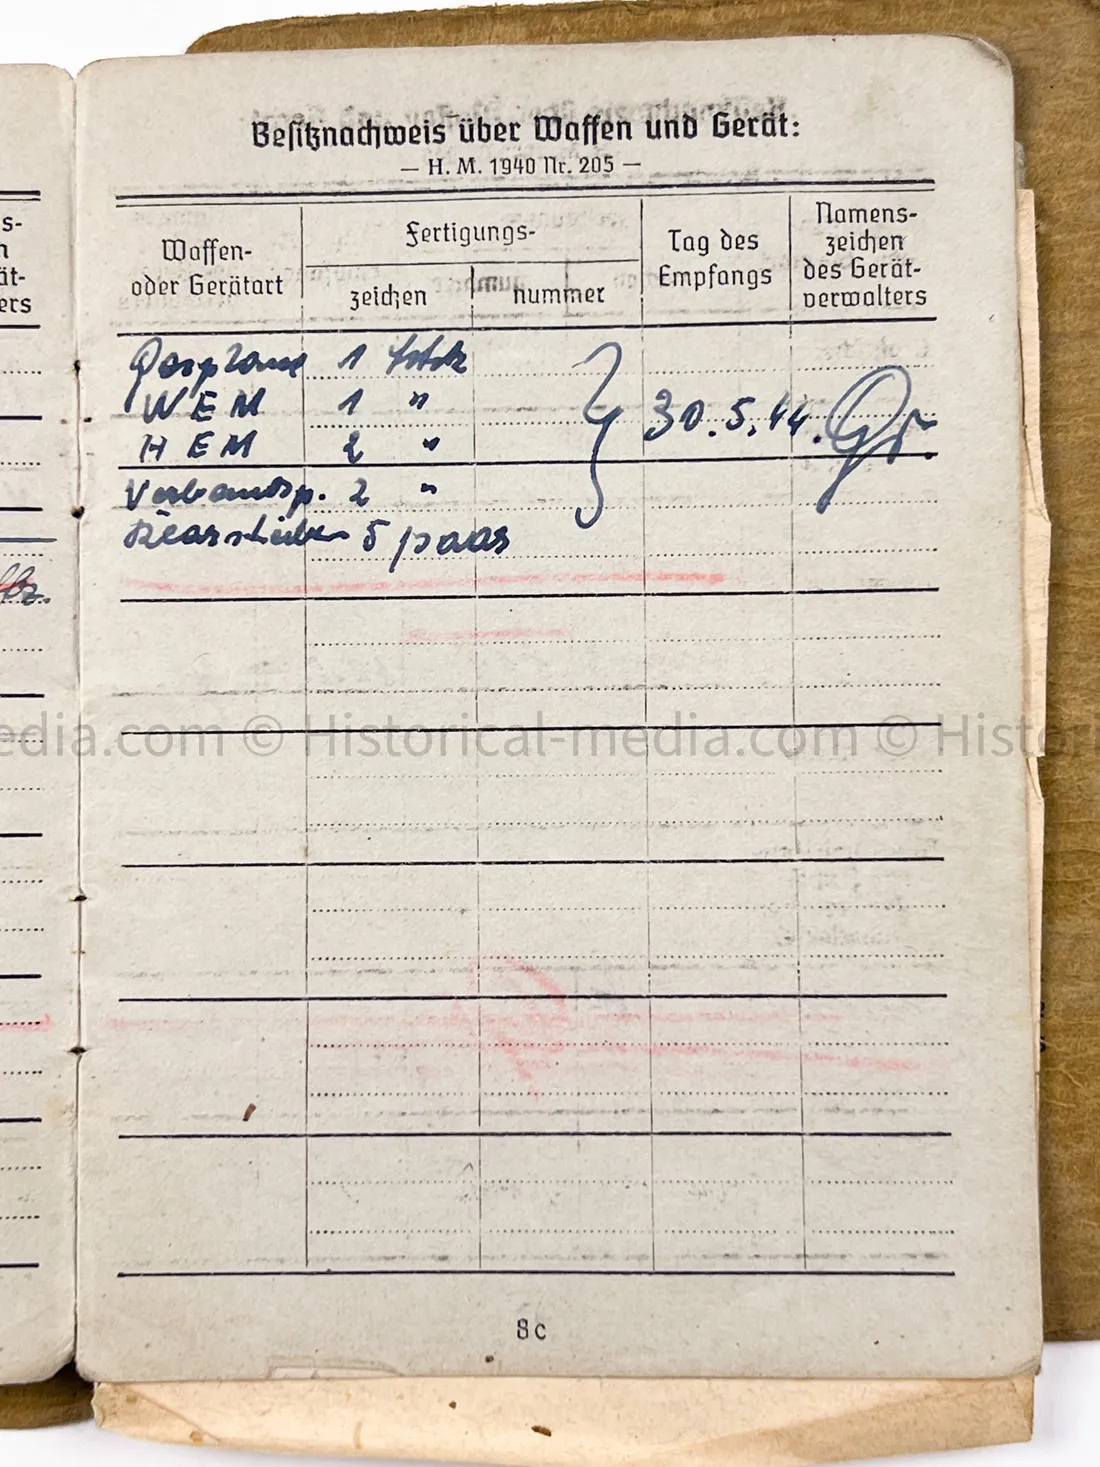 Besitznachweis über Waffen und Gerät:
— H. M. 1940 Nr. 205 —
Waffen-
oder Gerätart
Fertigungs-
zeichen
nummer
Tag des
Empfangs
Namens-
zeichen
des Gerät-
verwalters
Gasplane 1 Stck
W E M 1 "
H E M 2 "
30.5.44.
Verbandsp. 2 "
Klarscheiben 5 paar
s-
n
ät-
ers
edia.com © Historical-media.com © Histori
8c